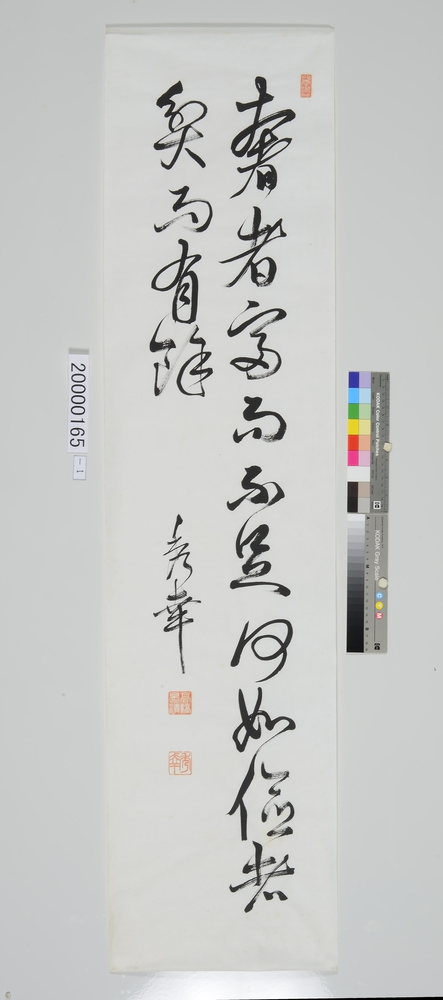 奢者富而不足何如儉者
貧而有餘
秀華
20000165
-1
KODAK Color Control Patches
KODAK Gray Scale